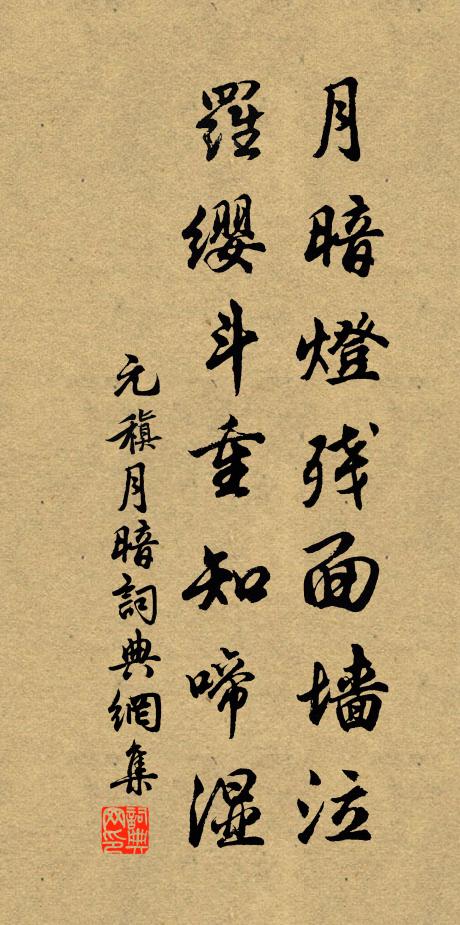 月暗燈残面墙泣
羅纓斗重知啼湿
元稹月暗詞典網集
詞典网印